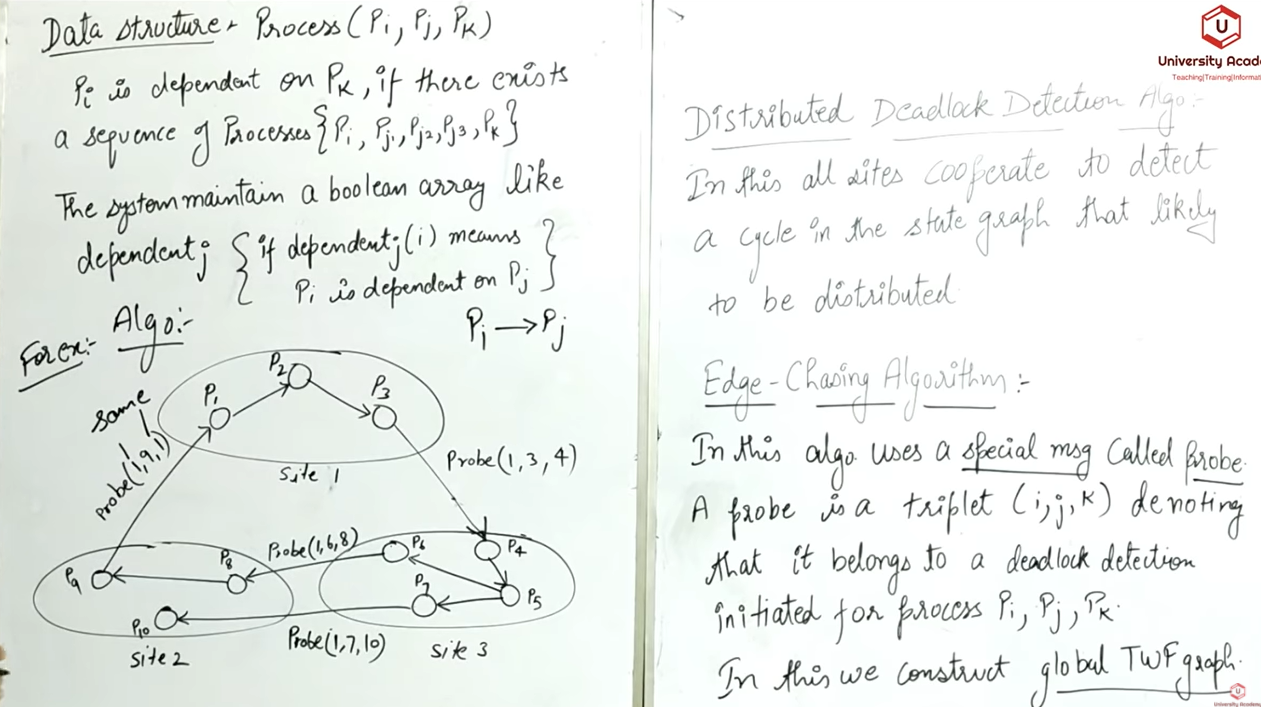 Data structure - Process (Pi, Pj, PK)
Pi is dependent on PK, if there exists
a sequence of Processes {Pi, Pj1, Pj2, Pj3, PK}
The system maintain a boolean array like
dependentj { if dependentj(i) means
Pi is dependent on Pj }
Pi → Pj
Algo:-
For ex:-
P1
P2
P3
Site 1
same
Probe(1,9,1)
Probe(1,3,4)
P9
P8
P10
Site 2
Probe(1,6,8)
P6
P4
P7
P5
Probe(1,7,10)
Site 3
U
University Acade
Teaching|Training|Informat
Distributed Deadlock Detection Algo:-
In this all sites cooperate to detect
a cycle in the state graph that likely
to be distributed
Edge-Chasing Algorithm:-
In this algo uses a special msg Called Probe.
A probe is a triplet (i,j,K) denoting
that it belongs to a deadlock detection
initiated for process Pi, Pj, PK.
In this we construct global TWF graph.
University Academy